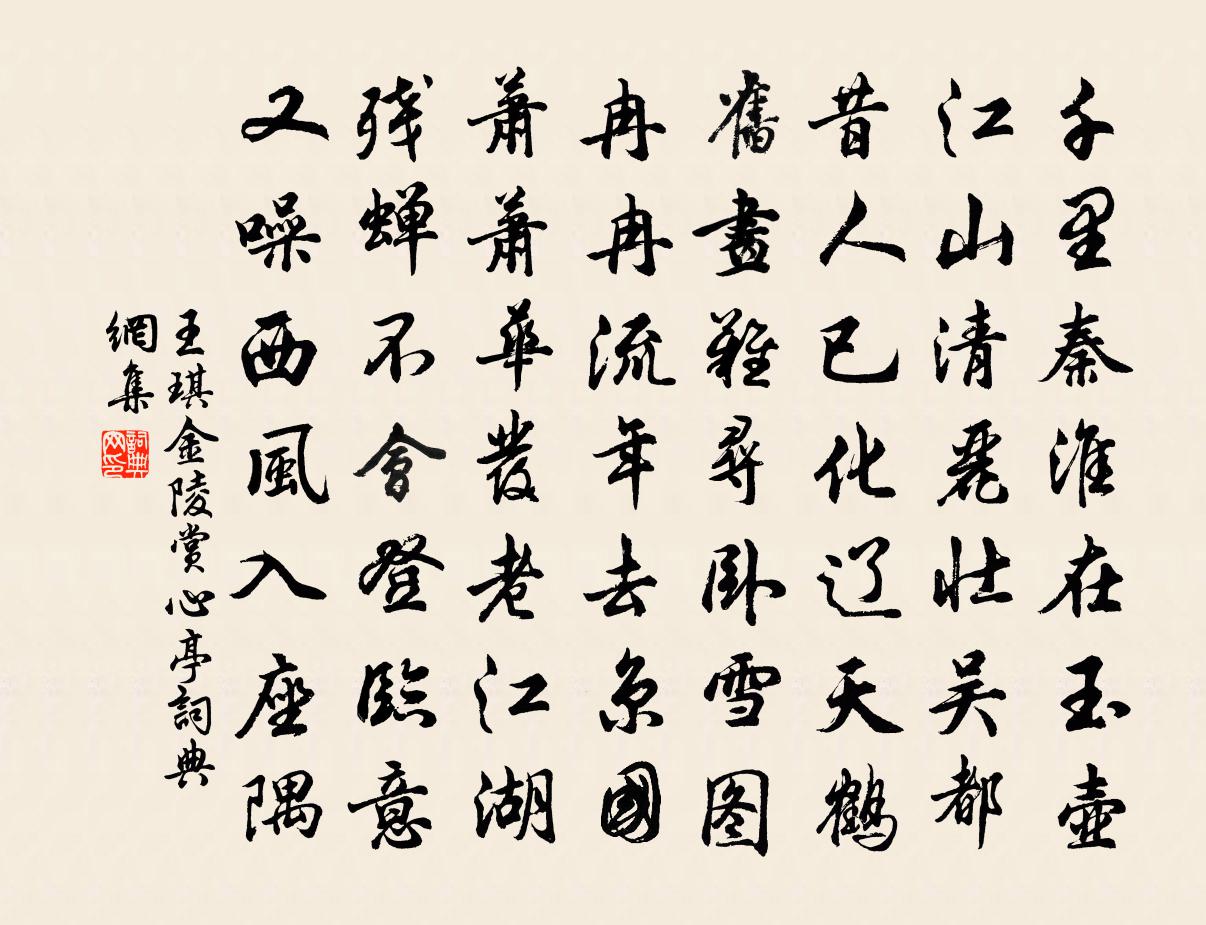 千里秦淮在玉壷
江山清麗壮吴都
昔人已化辽天鹤
舊畫難尋卧雪图
冉冉流年去京國
蕭蕭華發老江湖
残蝉不會登臨意
又噪西風入座隅
王琪金陵赏心亭詞典
網集
詞典
网印